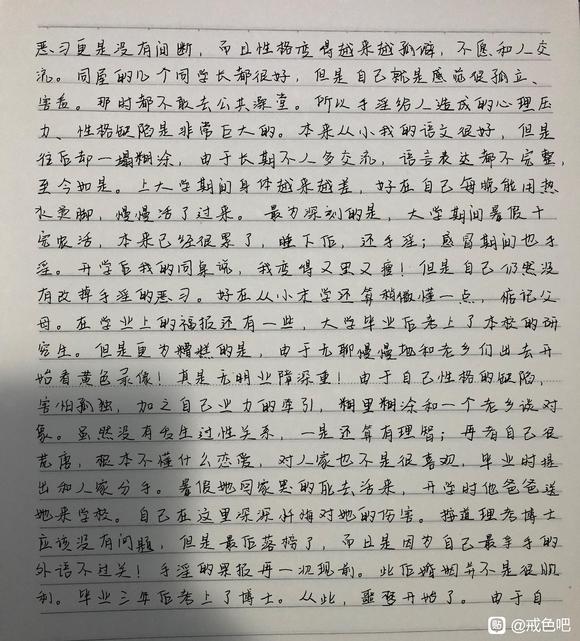 恶习更是没有间断，而且性格变得越来越孤僻，不愿和人交
流。同屋的几个同学长都很好，但是自己就是感觉很孤立、
害羞。那时都不敢去公共澡堂。所以手淫给人造成的心理压
力、性格缺陷是非常巨大的。本来从小我的语文很好，但是
往后却一塌糊涂，由于长期不人多交流，语言表达都不完整，
至今如是。上大学期间身体越来越差，好在自己每晚能用热
水烫脚，慢慢活了过来。最为深刻的是，大学期间暑假干
完农活，本来已经很累了，睡下后，还手淫；感冒期间也手
淫。开学后我的同桌说，我变得又黑又瘦！但是自己仍然没
有改掉手淫的恶习。好在从小本学还算稍微懂一点，惦记父
母。在学业上的福报还有一些，大学毕业后考上了本校的研
究生。但是更为糟糕的是，由于无聊慢慢地和老乡们出去开
始看黄色录像！真是无明业障深重！由于自己性格的缺陷，
害怕孤独，加之自己业力的牵引，糊里糊涂和一个老乡谈对
象。虽然没有发生过性关系，一是还算有理智；再者自己很
荒唐，根本不懂什么恋爱，对人家也不是很喜欢，毕业时提
出和人家分手。暑假她回家哭的死去活来，开学时他爸爸送
她来学校。自己在这里深深忏悔对她的伤害。按道理考博士
应该没有问题，但是最后落榜了，而且是因为自己最拿手的
外语不过关！手淫的果报再一次现前。此后婚姻并不是很顺
利。毕业三年后考上了博士。从此，噩梦开始了。由于自
贴 @戒色吧